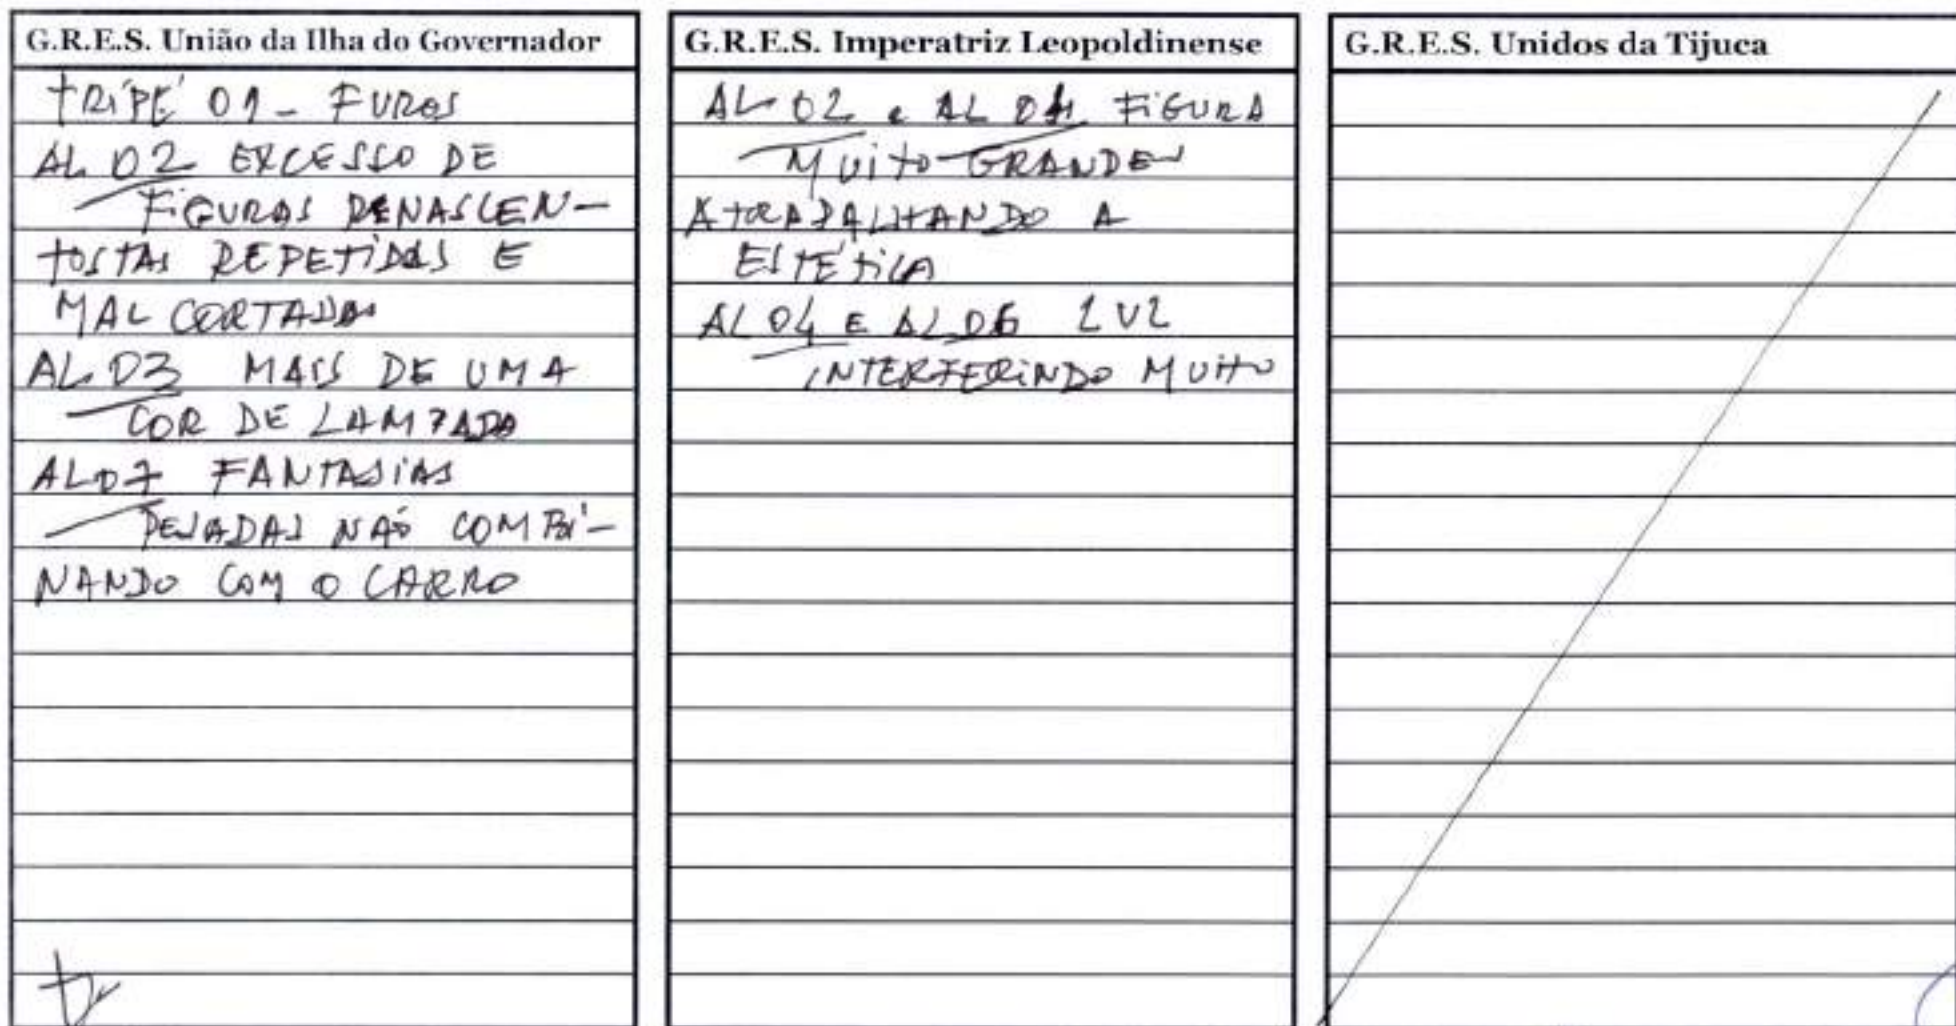 G.R.E.S. União da Ilha do Governador
TRÍPÉ 01 - FUROS
AL 02 EXCESSO DE
FIGURAS RENASCEN-
TOSTAS REPETIDAS E
MAL CORTADAS
AL 03 MAIS DE UMA
COR DE LAMPADA
AL 07 FANTASIAS
PESADAS NAÕ COMBI-
NANDO COM O CARRO
G.R.E.S. Imperatriz Leopoldinense
AL 02 e AL 04 FIGURA
MUITO GRANDE
ATRAPALHANDO A
ESTÉTICA
AL 04 E AL 06 LUZ
INTERFERINDO MUITO
G.R.E.S. Unidos da Tijuca